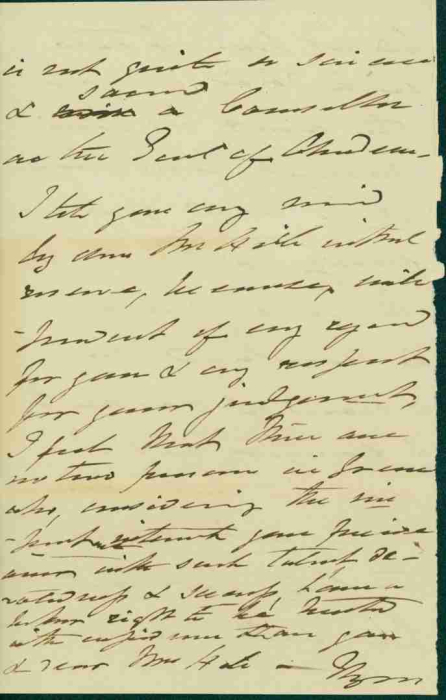 is not quite so sincere
sound
& a Counsellor
as the Earl of Aberdeen
I tell you my mind
by and Mr H without
reserve, because, inde
-pendent of my regard
for you & my respect
for your judgment,
I feel that there are
no two persons in
who, considering the in
-terest your
with such talent, de
-votedness & success, have a
better right to be treated
with confidence than you
& dear Mrs H